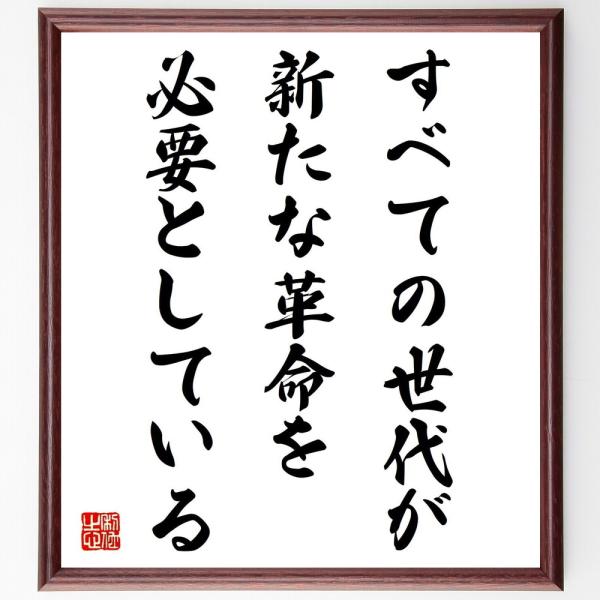 すべての世代が
新たな革命を
必要としている